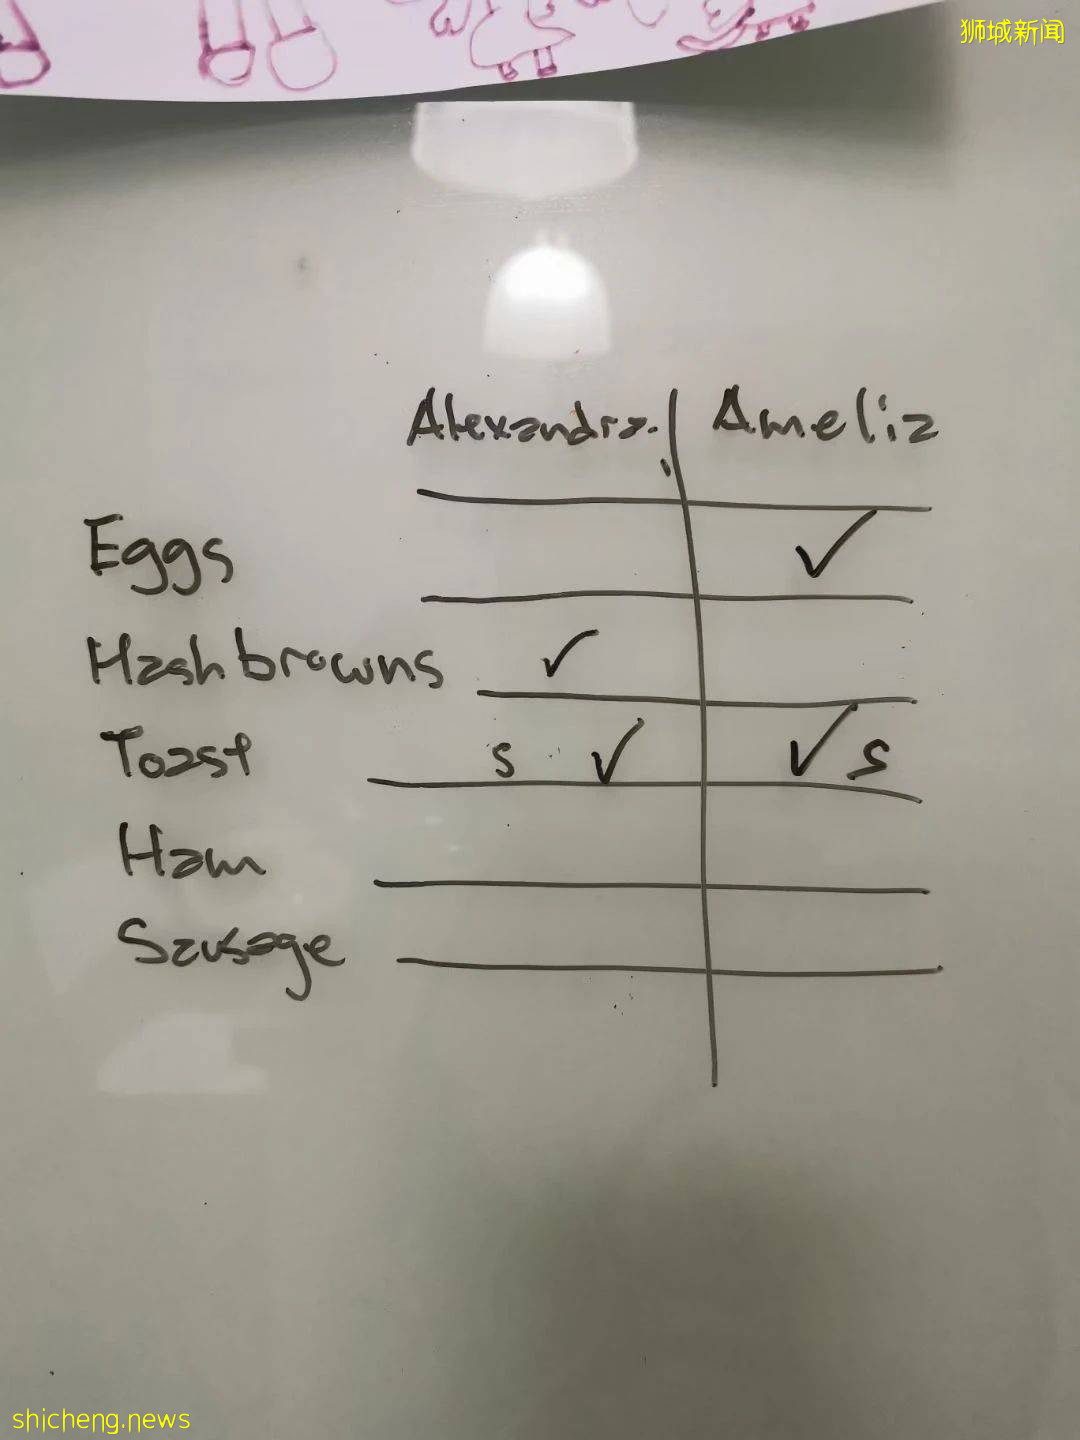 狮城新闻
Alexandra. Amelia
Eggs ✓
Hashbrowns ✓
Toast s ✓ ✓ s
Ham
Sausage
shicheng.news